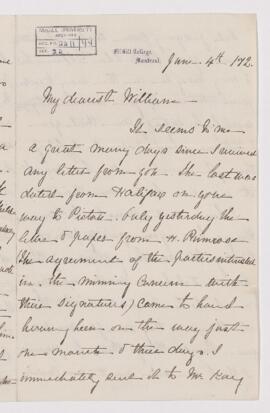 McGILL UNIVERSITY
ARCHIVES
ACC. NO. 2211
REF. 22
McGill College,
Montreal.
June 4th 1/72.
My dearest William -
It seems to me
a great many days since I received
any letter from you. The last was
dated from Halifax on your
way to Pictou. Only yesterday the
letter & paper from H. Primrose
(the agreement of the parties interested
in the mining concern with
their signatures) came to hand
having been on the way just
one month & three days. I
immediately sent it to Mr Kay